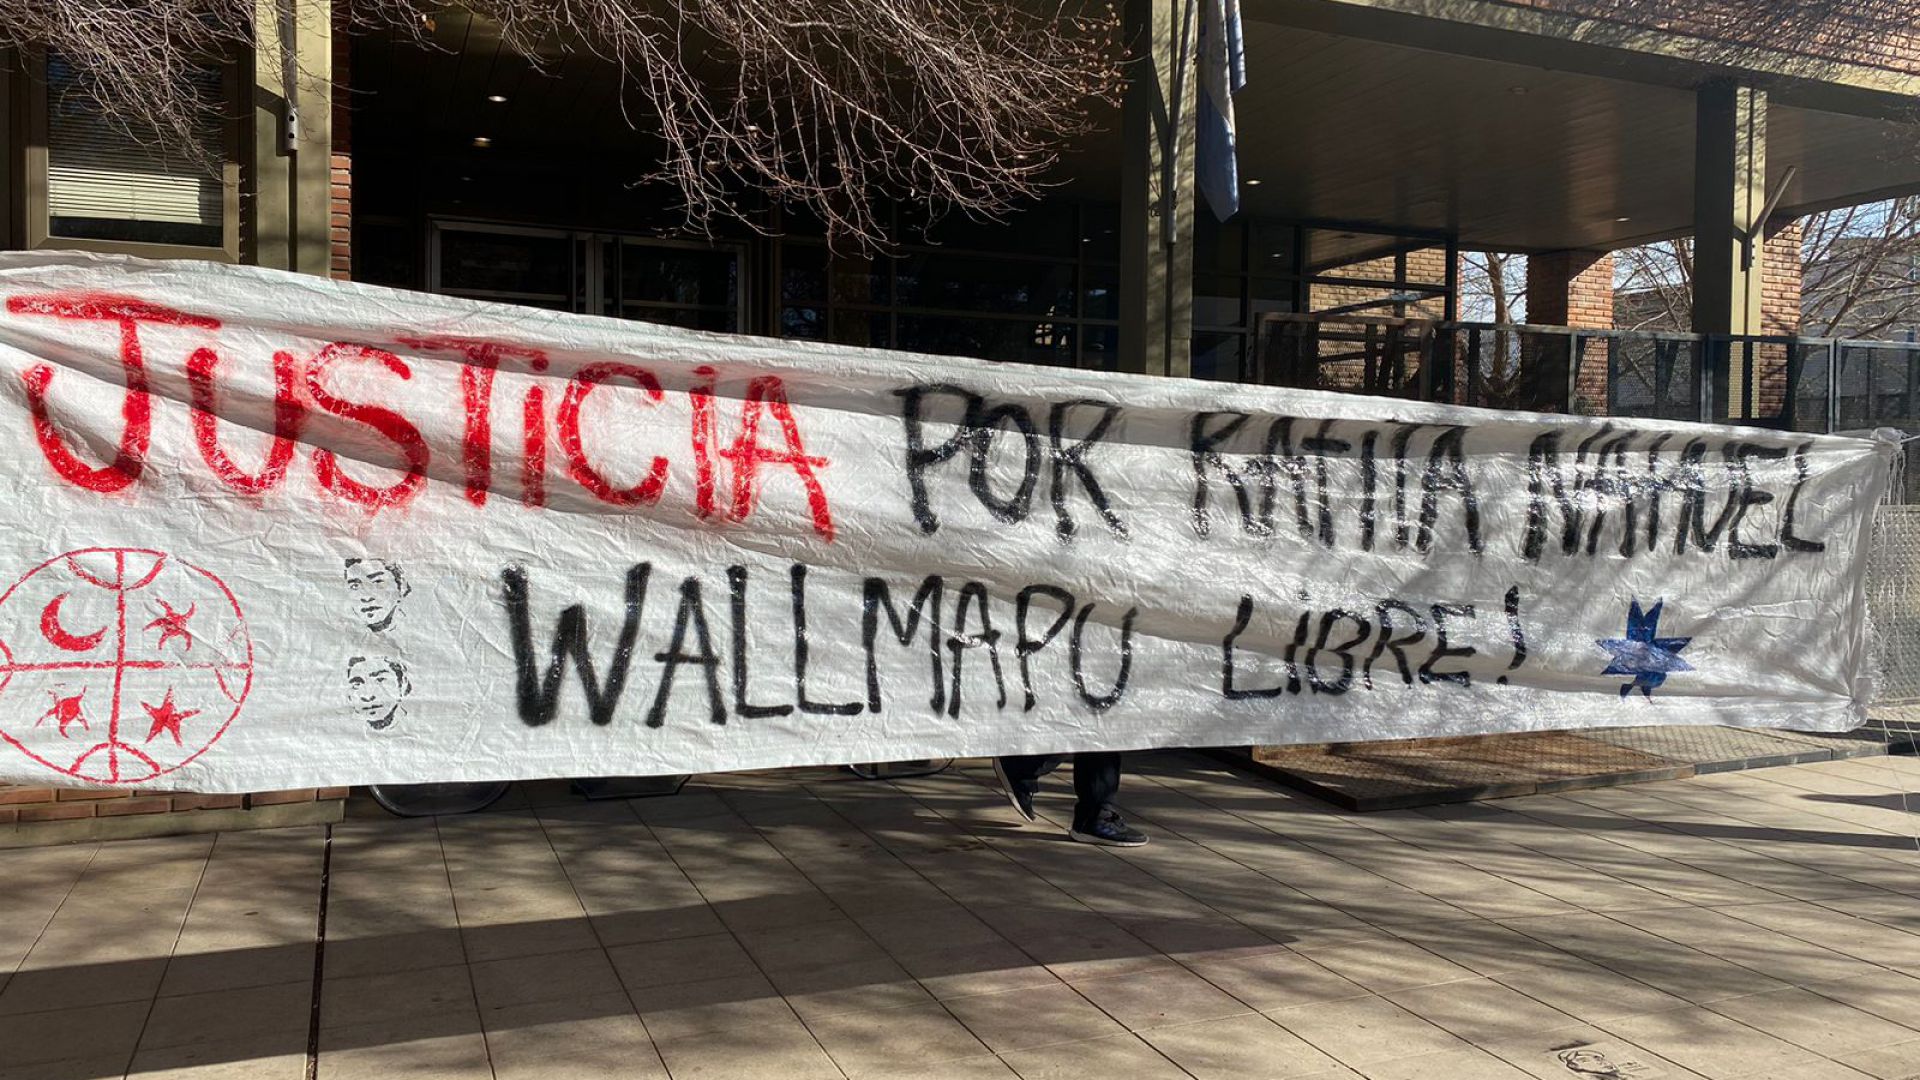 JUSTICIA POR RAFITA NAHUEL
WALLMAPU LIBRE!